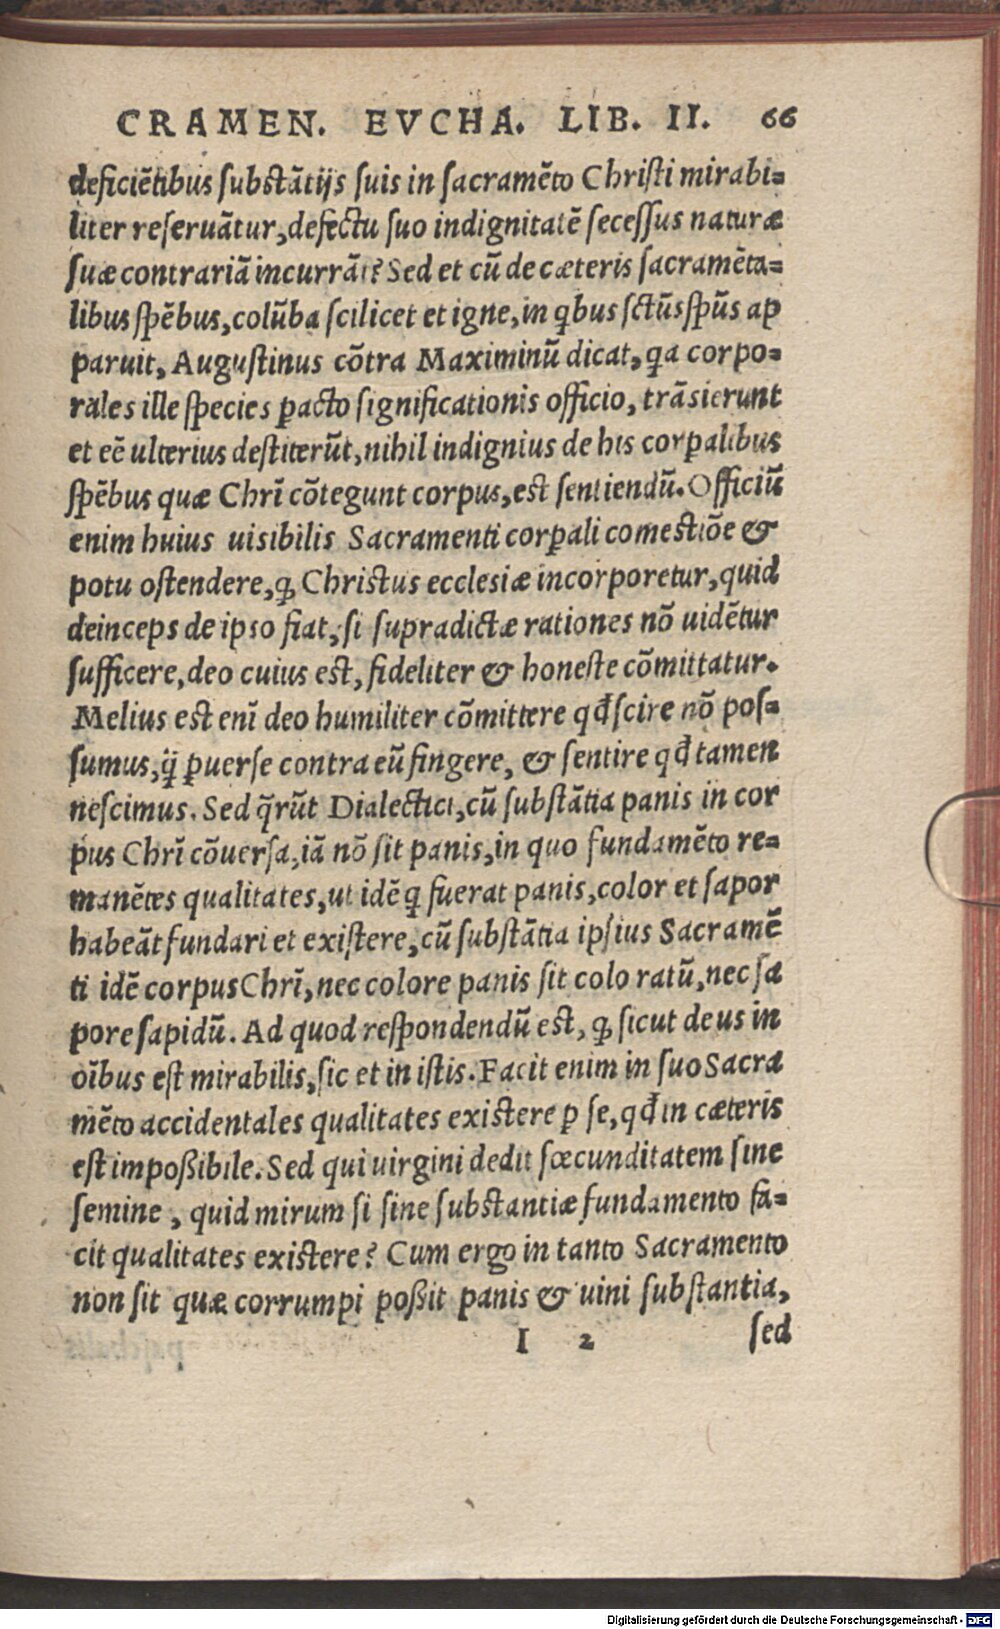 CRAMEN. EVCHA. LIB. II. 66
deficiẽtibus ſubſtãtijs ſuis in ſacramẽto Chriſti mirabi=
liter reſeruãtur, defectu ſuo indignitatẽ ſeceſſus naturæ
ſuæ contrariã incurrãt? Sed et cũ de cæteris ſacramẽta=
libus ſpẽbus, colũba ſcilicet et igne, in qbus ſctũs ſpũs ap
paruit, Auguſtinus cõtra Maximinũ dicat, qa corpo=
rales ille ſpecies ꝑacto ſignificationis officio, trãſierunt
et eẽ ulterius deſtiterũt, nihil indignius de his corꝑalibus
ſpẽbus quæ Chrĩ cõtegunt corpus, eſt ſentiendũ. Officiũ
enim huius uiſibilis Sacramenti corꝑali comeſtiõe &
potu oſtendere, ꝙ Chriſtus eccleſiæ incorporetur, quid
deinceps de ipſo fiat, ſi ſupradictæ rationes nõ uidẽtur
ſufficere, deo cuius eſt, fideliter & honeſte cõmittatur.
Melius eſt enĩ deo humiliter cõmittere qđ ſcire nõ poſ=
ſumus, q̃ ꝑuerſe contra eũ fingere, & ſentire qđ tamen
neſcimus. Sed q̃rũt Dialectici, cũ ſubſtãtia panis in cor
pus Chrĩ cõuerſa, iã nõ ſit panis, in quo fundamẽto re=
manẽtes qualitates, ut idẽ ꝙ fuerat panis, color et ſapor
habeãt fundari et exiſtere, cũ ſubſtãtia ipſius Sacramẽ
ti idẽ corpus Chrĩ, nec colore panis ſit colo ratũ, nec ſa
pore ſapidũ. Ad quod reſpondendũ eſt, ꝙ ſicut deus in
oĩbus eſt mirabilis, ſic et in iſtis. Facit enim in ſuo Sacra
mẽto accidentales qualitates exiſtere ꝑ ſe, qđ in cæteris
eſt impoßibile. Sed qui uirgini dedit fœcunditatem ſine
ſemine, quid mirum ſi ſine ſubſtantiæ fundamento fa=
cit qualitates exiſtere? Cum ergo in tanto Sacramento
non ſit quæ corrumpi poßit panis & uini ſubſtantia,
I 2 ſed
Digitalisierung gefördert durch die Deutsche Forschungsgemeinschaft - DFG